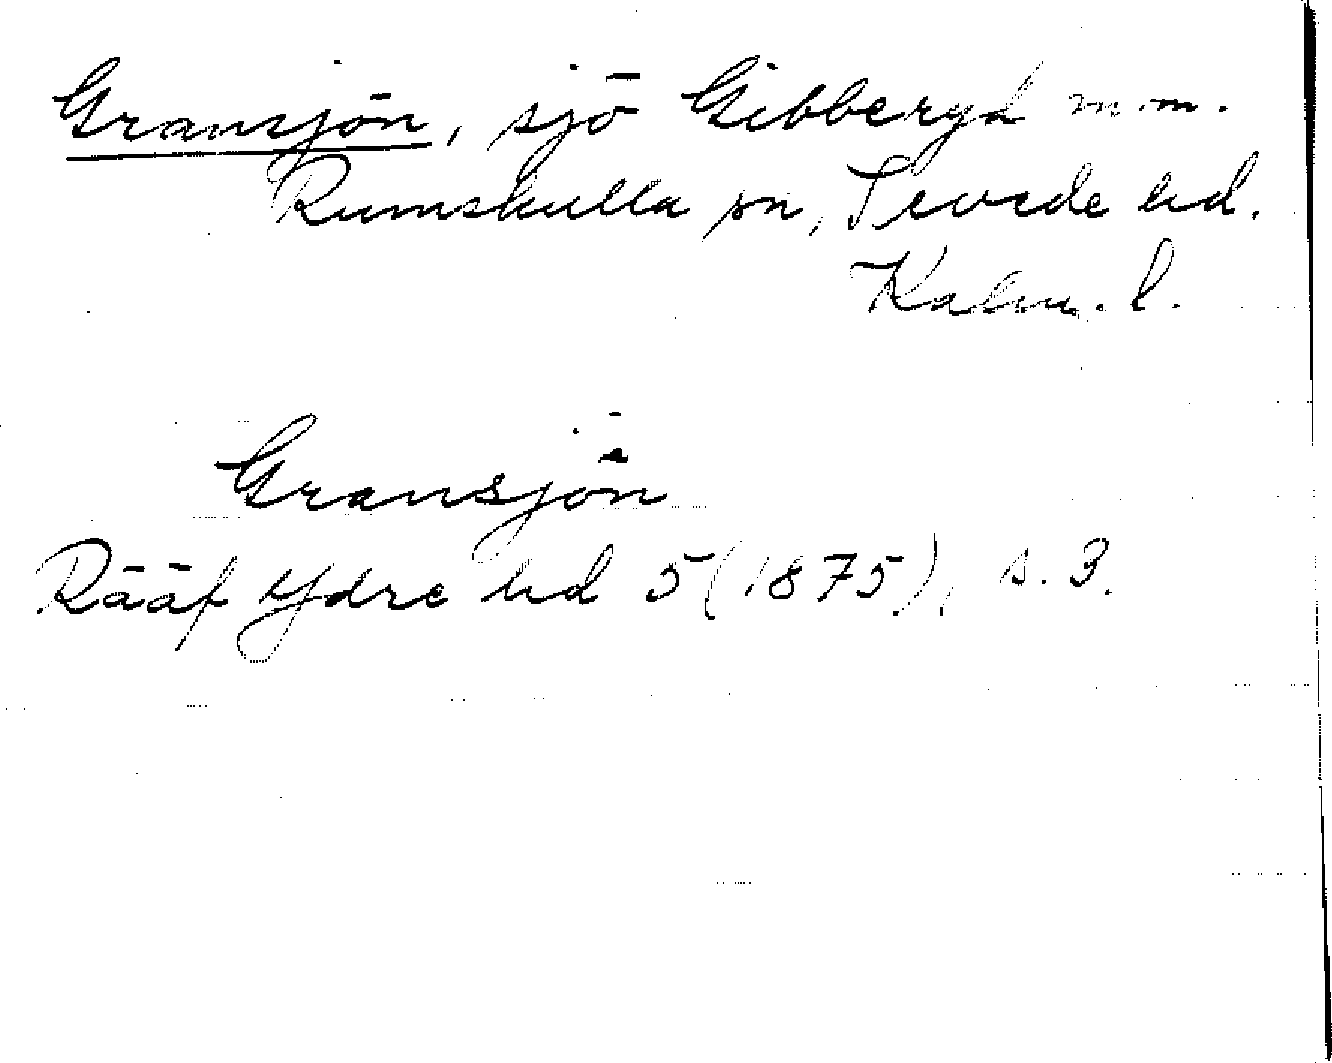 Gransjön, sjö Gibberyd m.m.
Rumskulla sn, Sevede hd.
Kalm. l.
Gransjön
Rääf Ydre hd 5 (1875), s. 3.